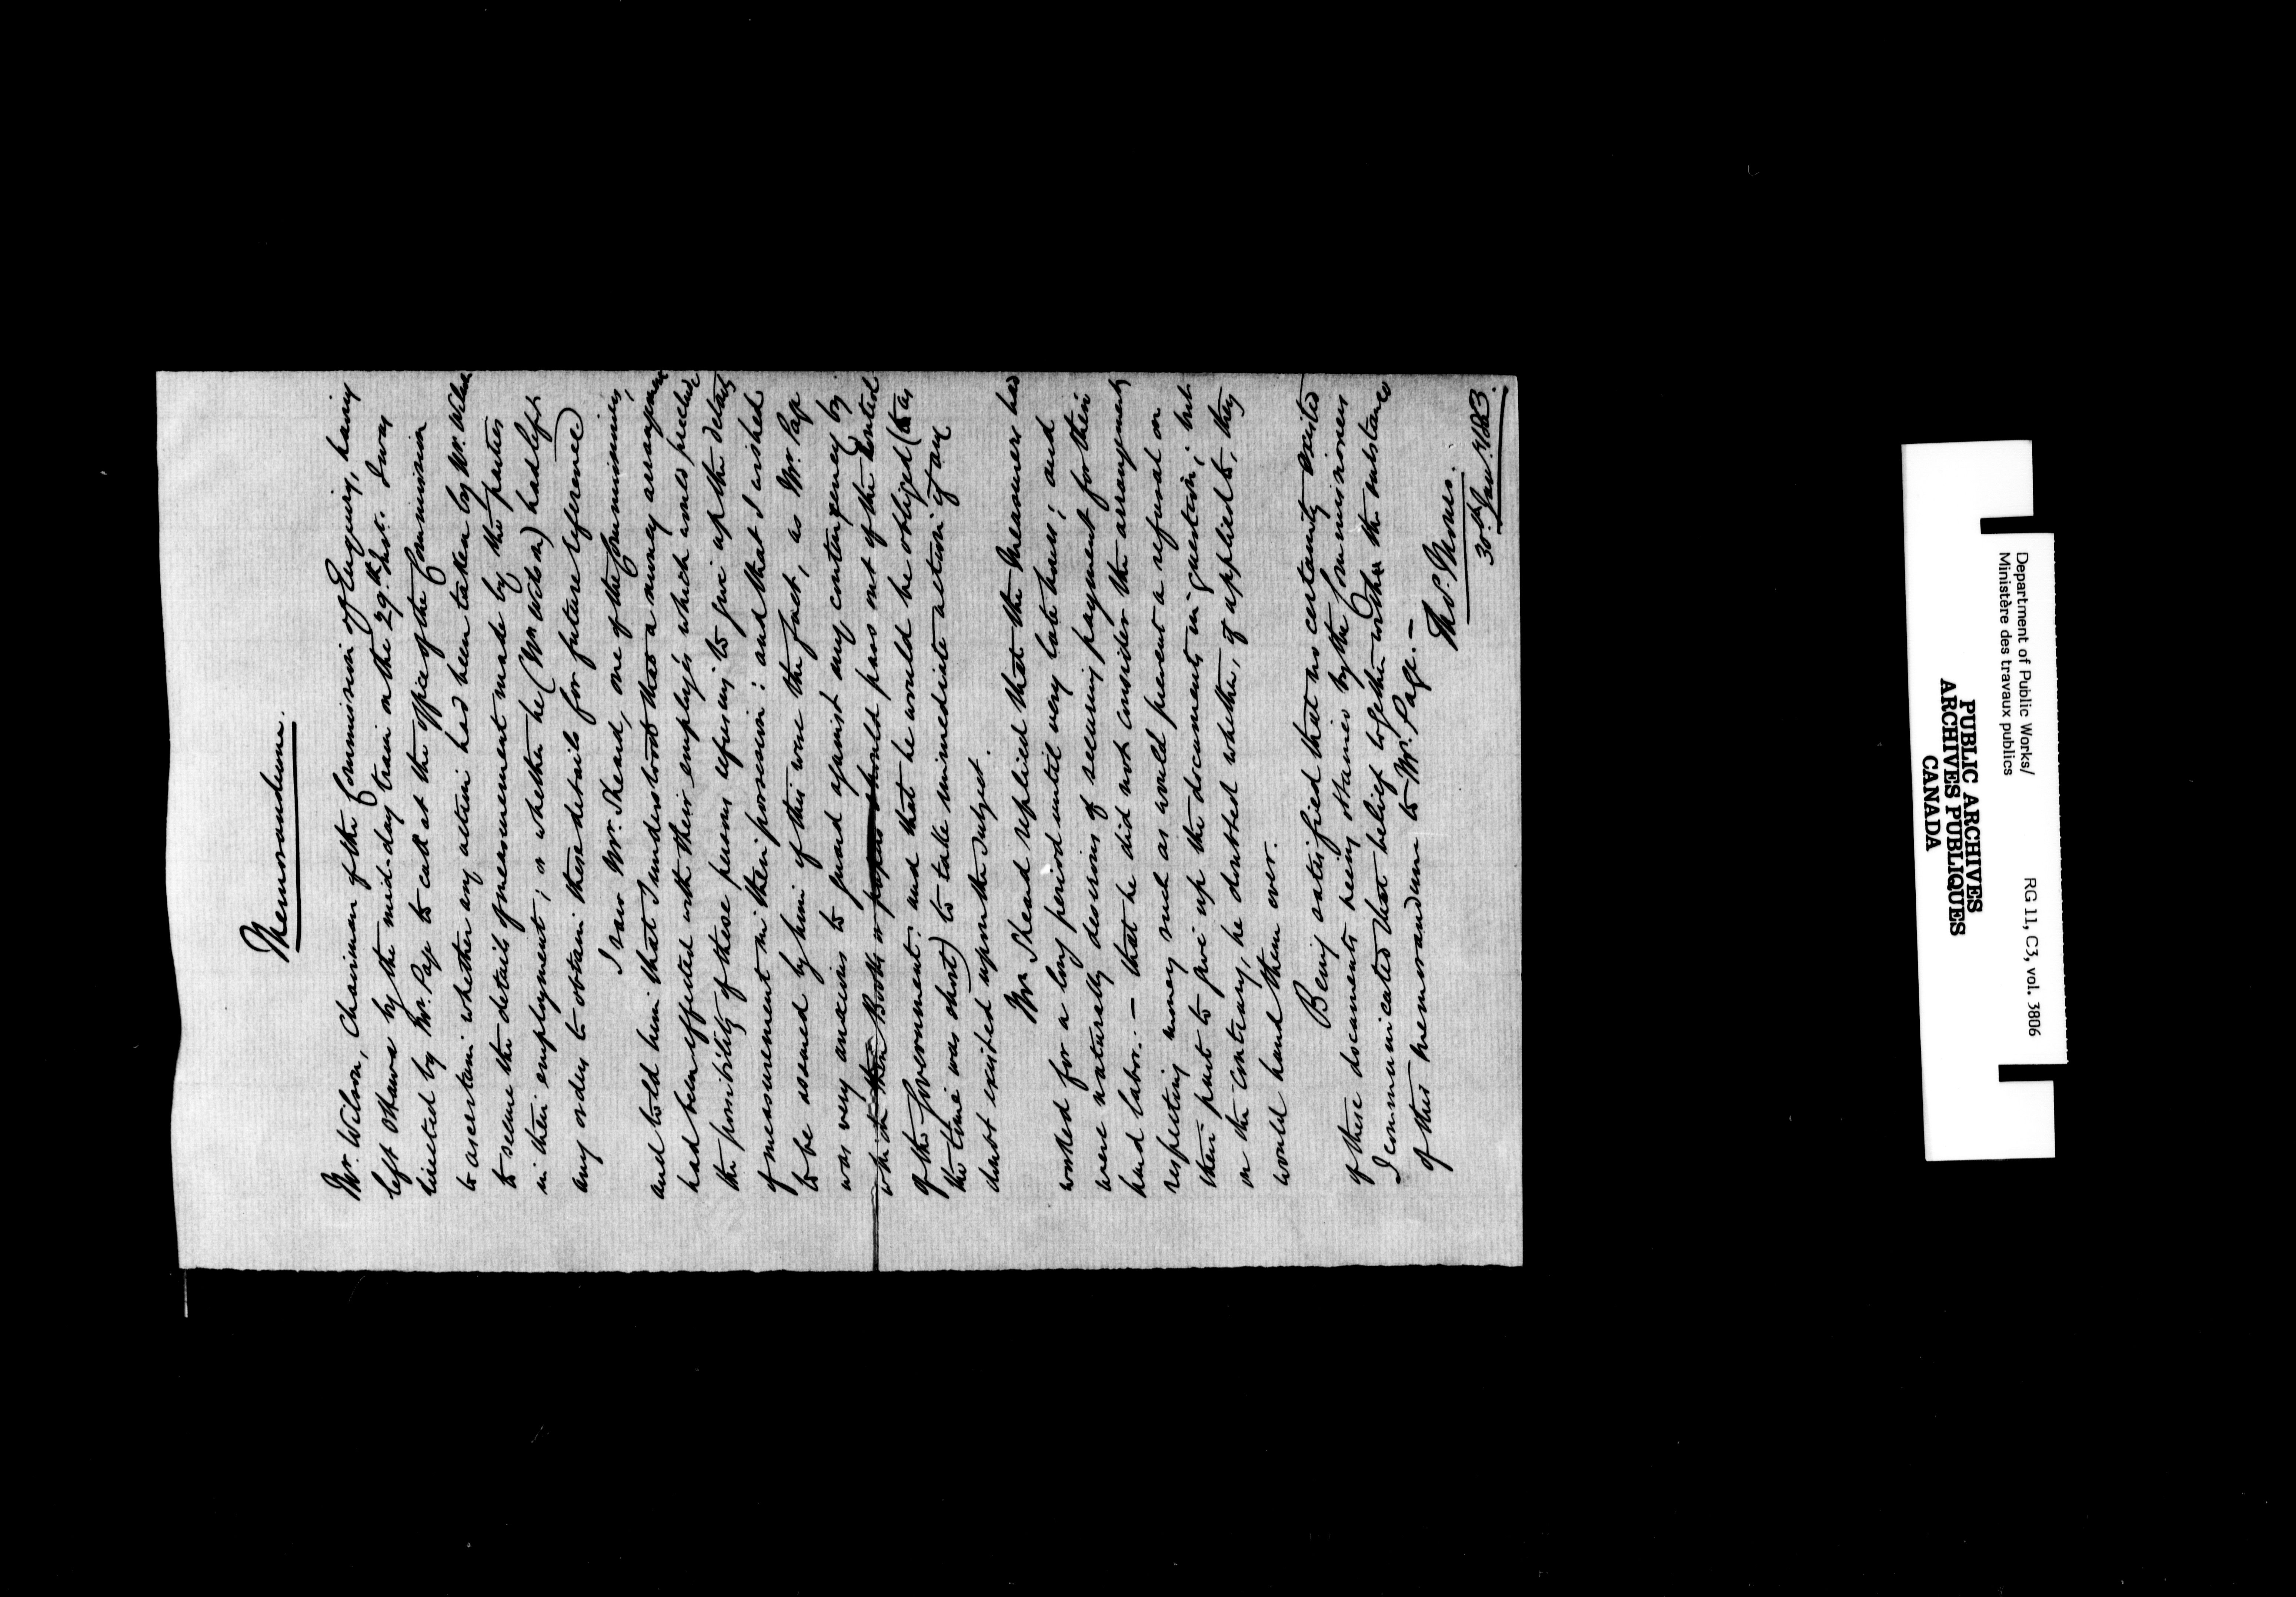 Memorandum.
Mr. Wilson, Chairman of the Commission of Enquiry, having
left Ottawa by the mid-day train on the 29th inst. I was
directed by Mr. Page to call at the office of the Commission
to ascertain whether any action had been taken by Mr. Wilson
to secure the details of measurement made by the parties
in their employment; or whether he (Mr Wilson) had left
any orders to obtain these details for future reference
I saw Mr. Sheard, one of the Commissioners,
and told him that I understood that a money arrangement
had been effected with their employés which would preclude
the possibility of these persons refusing to give up the details
of measurement in their possession: and that I wished
to be assured by him if this were the fact, as Mr. Page
was very anxious to guard against any contingency by
which their Books or papers should pass out of the control
of the Government: and that he would be obliged (as
the time was short) to take immediate action if any
doubt existed upon the subject.
Mr Sheard replied that the Measurers had
worked for a long period until very late hours; and
were naturally desirous of securing payment for their
hard labor. – that he did not consider the arrangements
respecting money such as would prevent a refusal on
their part to give up the documents in question; but
on the contrary, he doubted whether, if applied to, they
would hand them over.
Being satisfied that no certainty existed
of these documents being obtained by the Commissioners
I communicated that belief together with the substance
of this memorandum to Mr. Page. –
30th Jany. 1863.
Department of Public Works/
Ministère des travaux publics
RG 11, C3, vol. 3806
PUBLIC ARCHIVES
ARCHIVES PUBLIQUES
CANADA